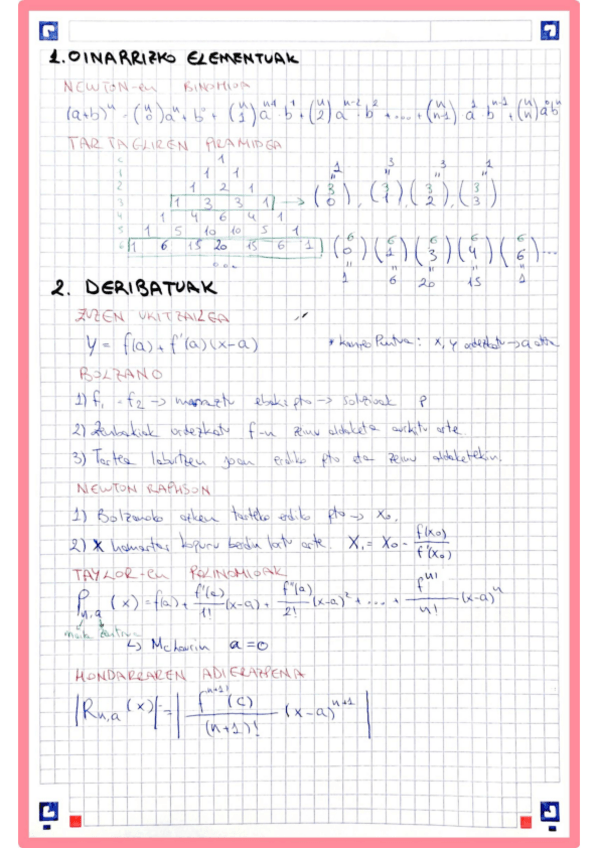 1. OINARRIZKO ELEMENTUAK
NEWTON-en BINOMIOA
(a+b)ⁿ = (n 0) aⁿ · b⁰ + (n 1) aⁿ⁻¹ · b¹ + (n 2) aⁿ⁻² · b² + .... + (n n-1) a¹ · bⁿ⁻¹ + (n n) a⁰bⁿ
TARTAGLIREN PIRAMIDEA
0 1
1 1 1
2 1 2 1
3 1 3 3 1 → (3 0), (3 1), (3 2), (3 3)
1 3 3 1
4 1 4 6 4 1
5 1 5 10 10 5 1
6 1 6 15 20 15 6 1 (6 0) (6 1) (6 3) (6 4) (6 6) ...
1 6 20 15 1
...
2. DERIBATUAK
ZUZEN UKITZAILEA
y = f(a) + f'(a)(x-a) * kanpo Puntua: x, y ordezkatu → a
BOLZANO
1) f₁ = f₂ → marraztu ebaki pto →
2) Zenbakiak ordezkatu f-n zeinu aldaketa aurkitu arte
3) Tartea laburtzen joan erdiko pto eta zeinu aldaketekin.
NEWTON RAPHSON
1) Bolzanoko azken tarteko erdiko pto → x₀.
2) X hamartar kopuru berdin lortu arte. X₁ = X₀ - f(x₀)/f'(x₀)
TAYLOR-en POLINOMIOAK
Pn,a (x) = f(a) + f'(a)/1! (x-a) + f''(a)/2! (x-a)² + ... + fⁿ⁾/n! (x-a)ⁿ
↳ Mclaurin a=0
HONDARRAREN ADIERAZPENA
|Rn,a (x)| = | fⁿ⁺¹⁾(c)/(n+1)! (x-a)ⁿ⁺¹ |